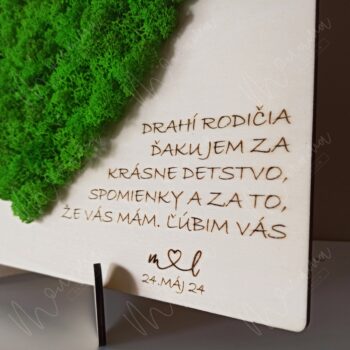 DRAHÍ RODIČIA
ĎAKUJEM ZA
KRÁSNE DETSTVO,
SPOMIENKY A ZA TO,
ŽE VÁS MÁM. ĽÚBIM VÁS
m♡l
24.MÁJ 24